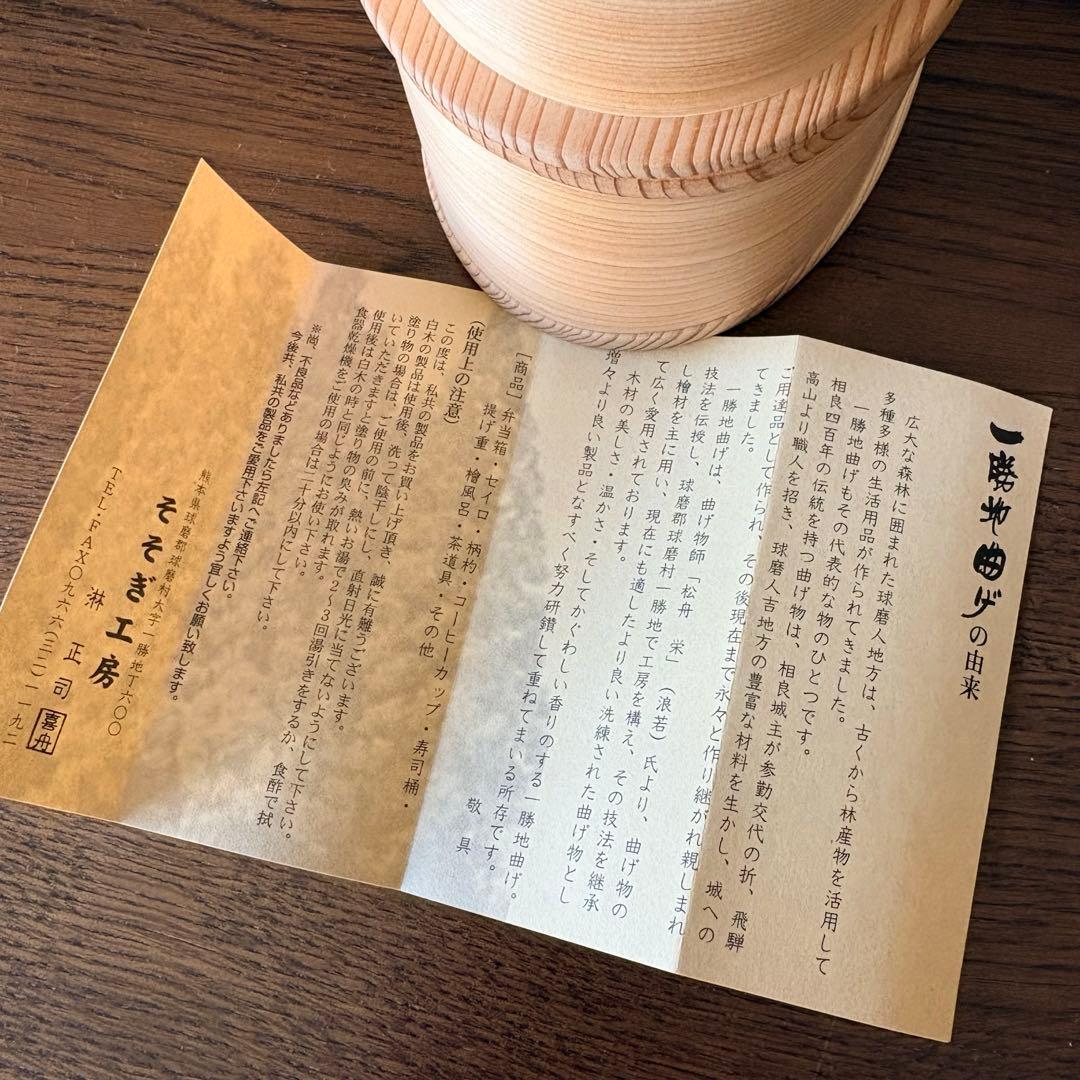 一勝地曲げの由来
広大な森林に囲まれた球磨人地方は、古くから林産物を活用して
多種多様の生活用品が作られてきました。
一勝地曲げもその代表的な物のひとつです。
相良四百年の伝統を持つ曲げ物は、相良城主が参勤交代の折、飛騨
高山より職人を招き、球磨人吉地方の豊富な材料を生かし、城への
ご用達品として作られ、その後現在まで永々と作り継がれ親しまれ
てきました。
一勝地曲げは、曲げ物師「松舟 栄」(浪若)氏より、曲げ物の
技法を伝授し、球磨郡球磨村一勝地で工房を構え、その技法を継承
し檜材を主に用い、現在にも適したより良い洗練された曲げ物とし
て広く愛用されております。
木材の美しさ・温かさ・そしてかぐわしい香りのする一勝地曲げ。
増々より良い製品となすべく努力研鑽して重ねてまいる所存です。
敬具
[商品]弁当箱・セイロ・柄杓・コーヒーカップ・寿司桶・
提げ重・檜風呂・茶道具・その他
(使用上の注意)
この度は、私共の製品をお買い上げ頂き、誠に有難うございます。
白木の製品は使用後、洗って陰干しにし、直射日光に当てないようにして下さい。
塗り物の場合は、ご使用の前に、熱いお湯で2〜3回湯引きをするか、食酢で拭
いていただきますと塗り物の臭みが取れます。
使用後は白木の時と同じようにお使い下さい。
食器乾燥機をご使用の場合は二十分以内にして下さい。
※尚、不良品などありましたら左記へご連絡下さい。
今後共、私共の製品をご愛用下さいますよう宜しくお願い致します。
熊本県球磨郡球磨村大字一勝地丁六〇〇
そそぎ工房
淋 正司
喜舟
TEL・FAX〇九六六(三二)一一九二